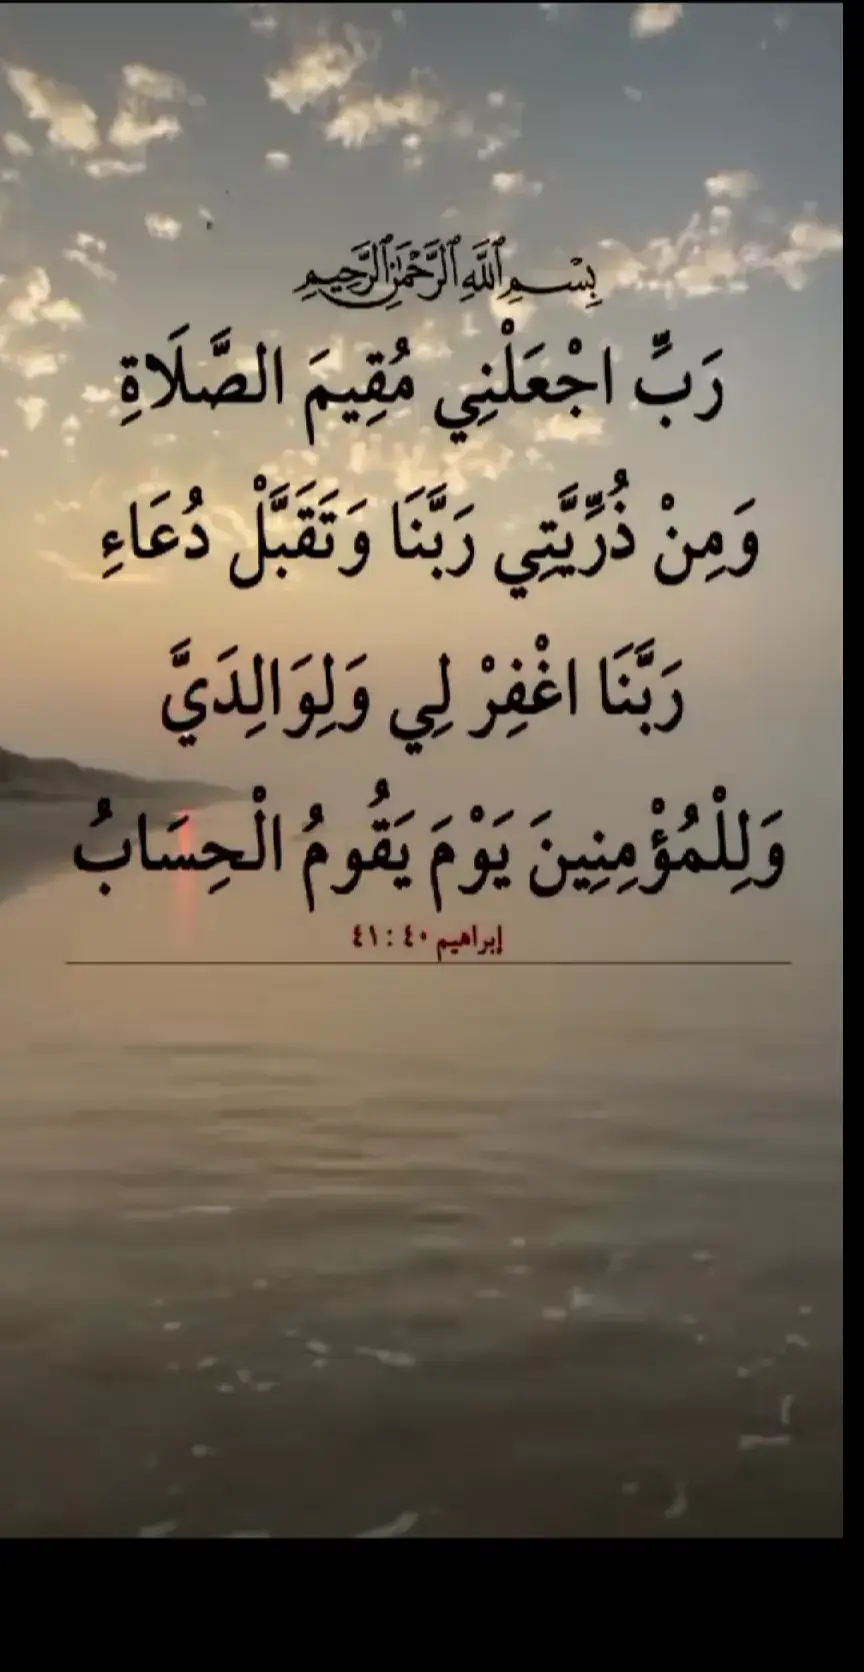 بِسْمِ ٱللَّهِ ٱلرَّحْمَٰنِ ٱلرَّحِيمِ
رَبِّ اجْعَلْنِي مُقِيمَ الصَّلَاةِ
وَمِنْ ذُرِّيَّتِي رَبَّنَا وَتَقَبَّلْ دُعَاءِ
رَبَّنَا اغْفِرْ لِي وَلِوَالِدَيَّ
وَلِلْمُؤْمِنِينَ يَوْمَ يَقُومُ الْحِسَابُ
إبراهيم ٤٠ : ٤١